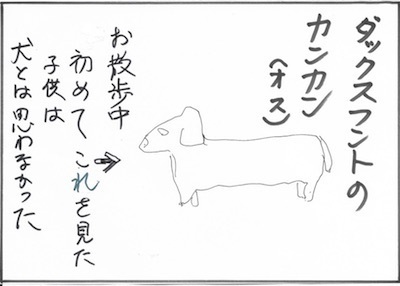 ダックスフントの
カンカン
(オス)
お散歩中
初めてこれを見た
子供は
犬とは思わなかった